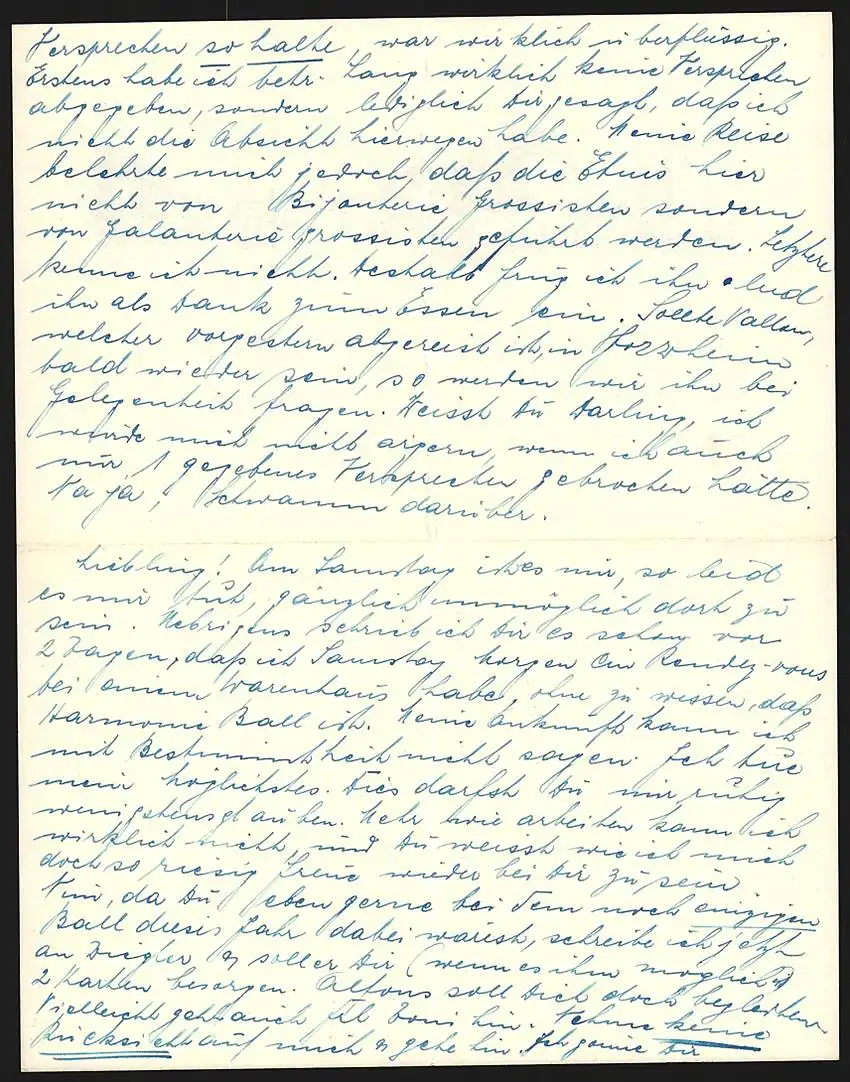 Versprechen so halte, war wirklich überflüssig.
Erstens habe ich betr. Lang wirklich keine Versprechen
abgegeben, sondern lediglich Dir gesagt, daß ich
nicht die Absicht hierwegen habe. Meine Reise
belehrte mich jedoch, daß die Etuis hier
nicht von Bijouterie Grossisten sondern
von Galanterie grossisten geführt werden. Letztere
kenne ich nicht. Deshalb frug ich ihn & lud
ihn als Dank zum Essen ein. Sollte
welcher vorgestern abgereist ist, in Pforzheim
bald wieder sein, so werden wir ihn bei
Gelegenheit fragen. Weisst Du Darling, ich
würde mich nicht ärgern, wenn ich auch
nur 1 gegebenes Versprechen gebrochen hätte.
Na ja, Schwamm darüber.
Liebling! Am Samstag ist es mir, so leid
es mir tut, gänzlich unmöglich dort zu
sein. Uebrigens schrieb ich Dir es schon vor
2 Tagen, daß ich Samstag Morgen ein Rendez-vous
bei einem Warenhaus habe, ohne zu wissen, daß
Harmonie Ball ist. Meine Ankunft kann ich
mit Bestimmtheit nicht sagen. Ich tue
mein Möglichstes. Dies darfst Du mir ruhig
wenigstens glauben. Mehr wie arbeiten kann ich
wirklich nicht, und Du weisst wie ich mich
doch so riesig freue wieder bei Dir zu sein
Nun, da Du eben gerne bei dem noch einzigen
Ball dieses Jahr dabei wärest, schreibe ich jetzt
an Ziegler & soll er Dir (wenn es ihm möglich ist)
2 Karten besorgen. Alfons soll Dich doch begleiten.
Vielleicht geht auch Frl Toni hin. Nehme keine
Rücksicht auf mich & gehe hin. Ich gönne Dir